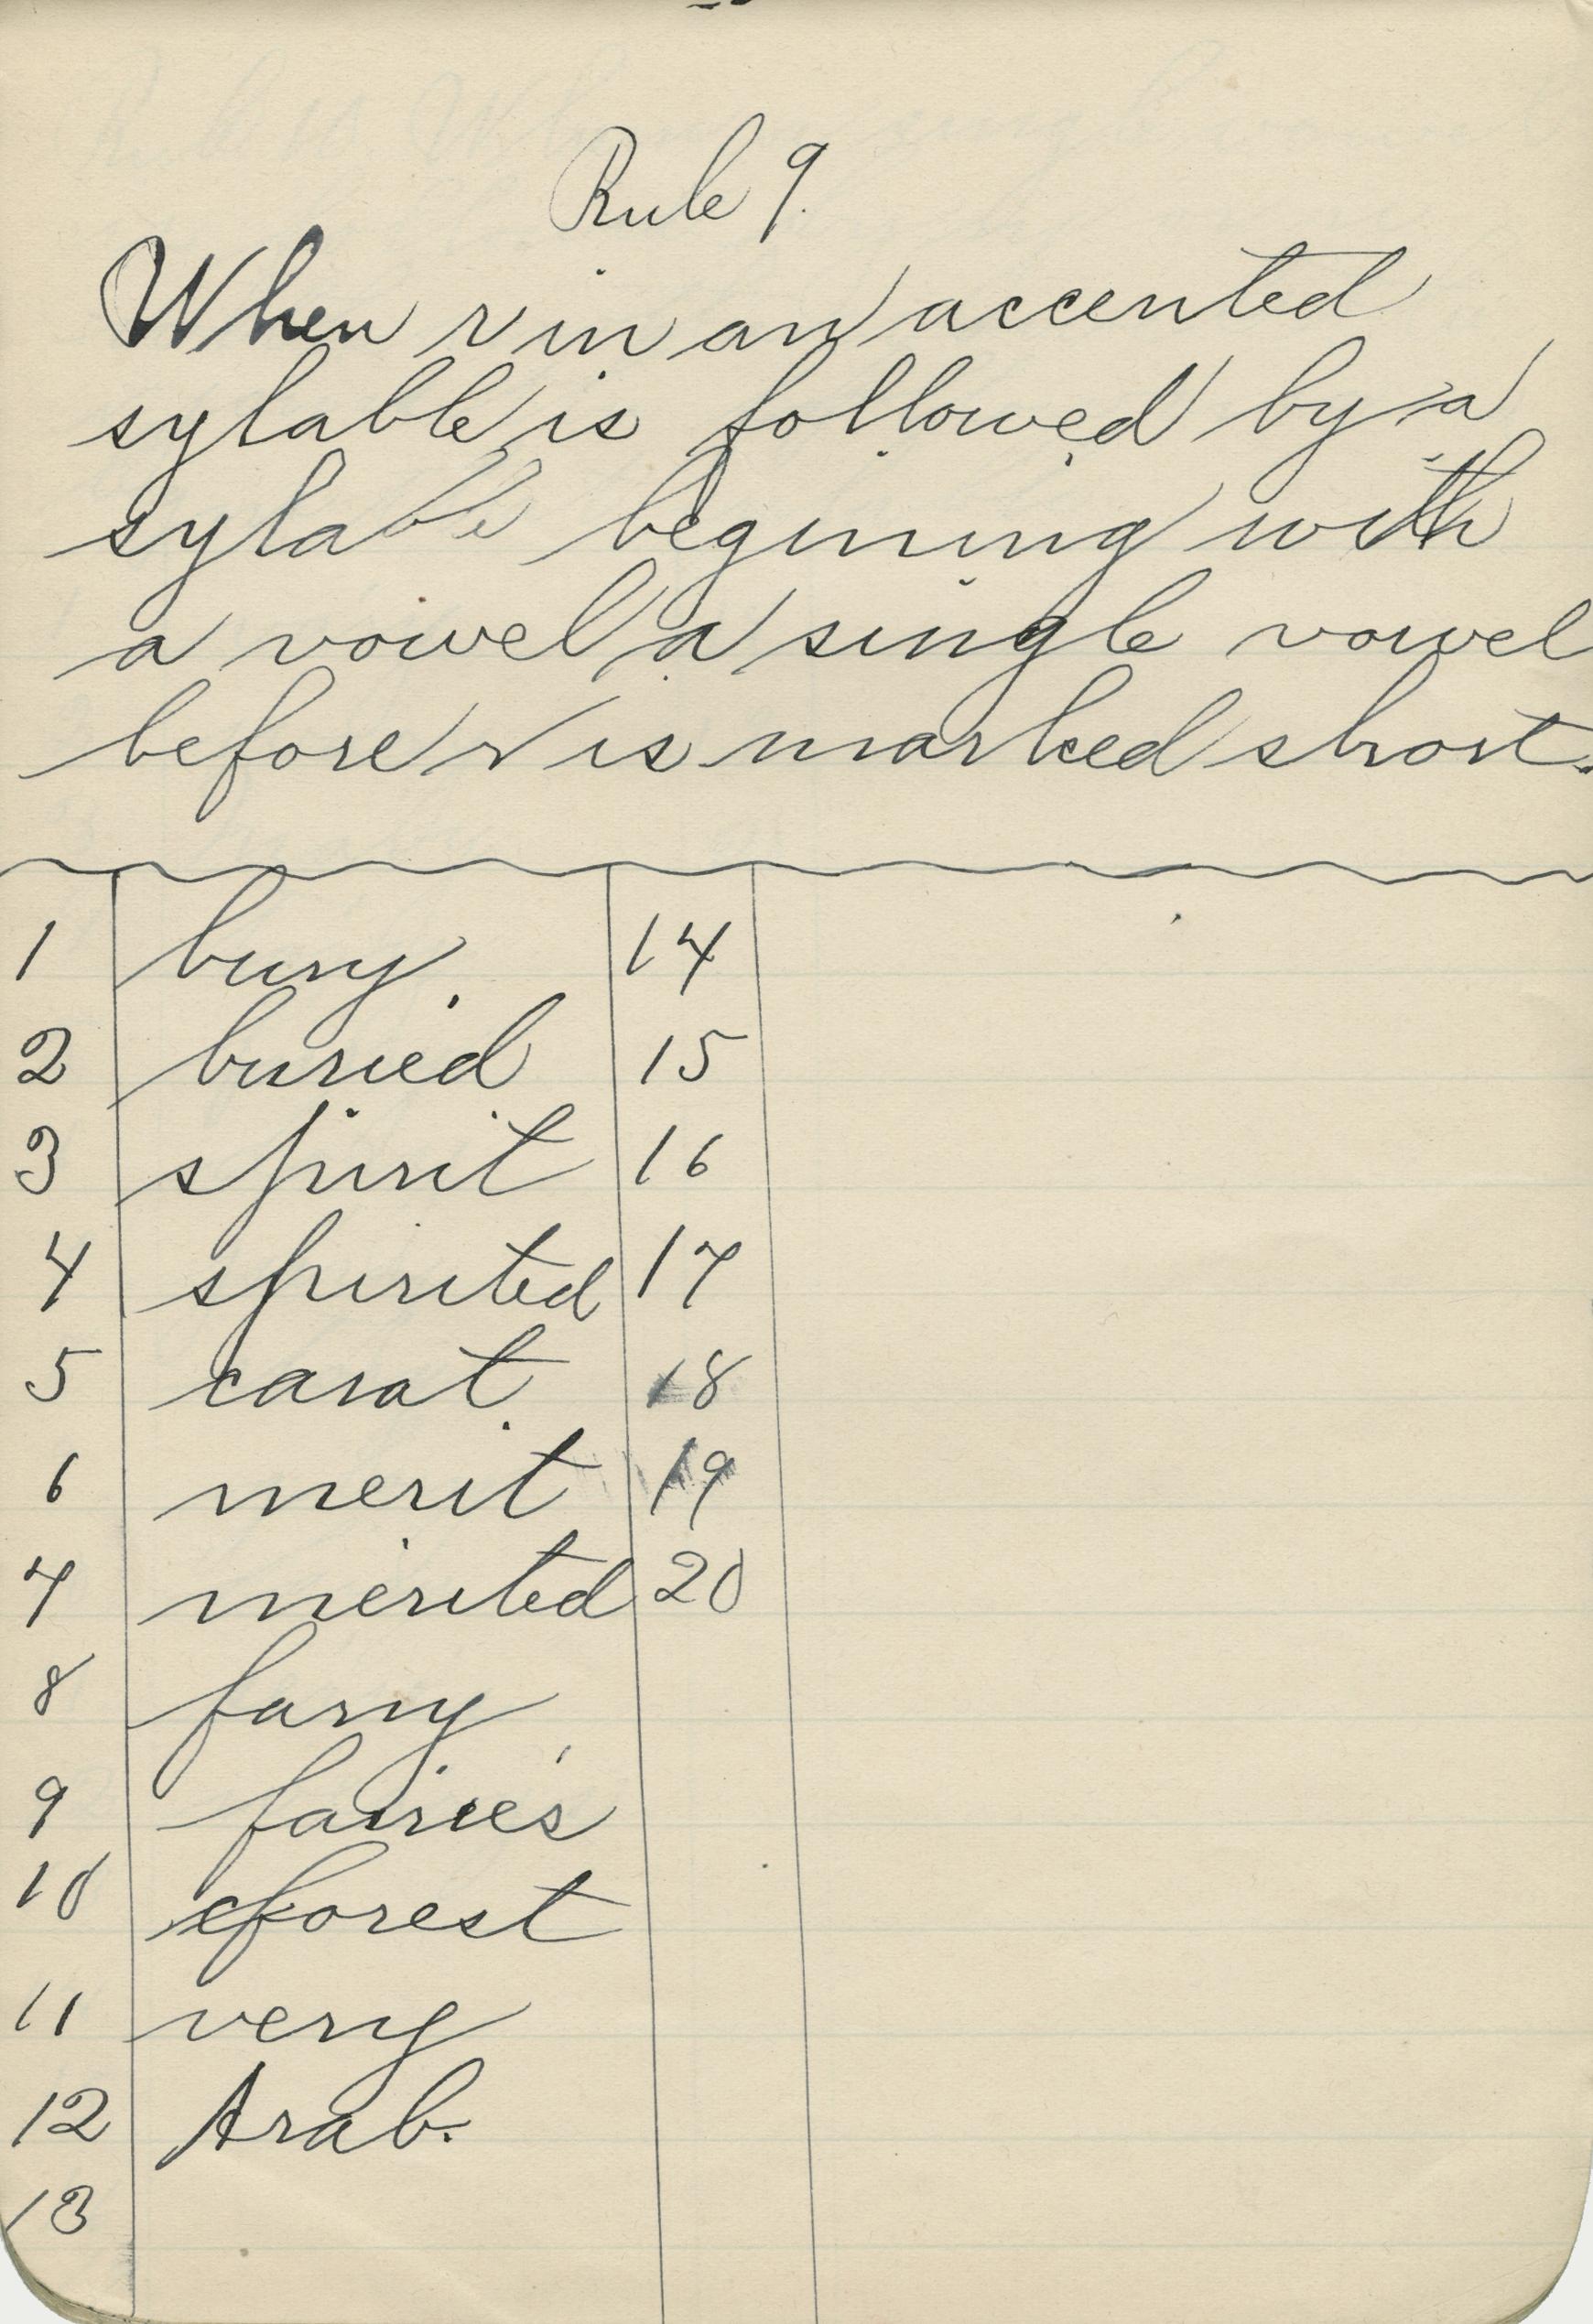 Rule 9.
When r in an accented
sylable is followed by a
sylable begining with
a vowel a single vowel
before r is marked short.
1 bury 14
2 buried 15
3 spirit 16
4 spirited 17
5 carat 18
6 merit 19
7 merited 20
8 farry
9 fairies
10 forest
11 very
12 Arab.
13